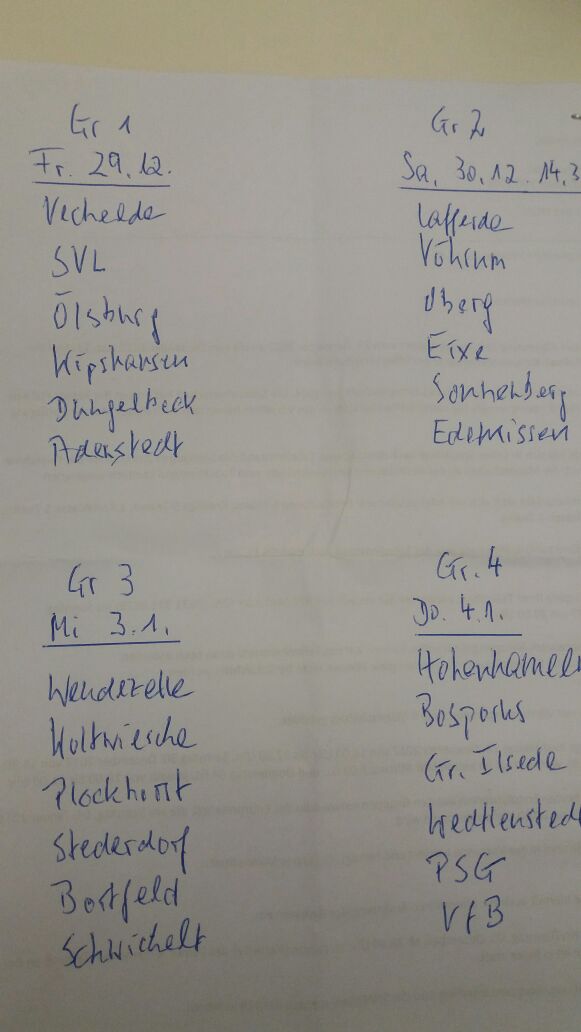 Gr 1
Fr. 29.12.
Vechelde
SVL
Ölsburg
Wipshausen
Dungelbeck
Adenstedt
Gr 2
Sa. 30.12. 14.3
Lafferde
Vöhrum
Oberg
Eixe
Sonnenberg
Edemissen
Gr 3
Mi 3.1.
Wendezelle
Woltwiesche
Plockhorst
Stederdorf
Bortfeld
Schwichelt
Gr. 4
Do. 4.1.
Hohenhameln
Bosporus
Gr. Ilsede
Wedtlenstedt
PSG
VfB